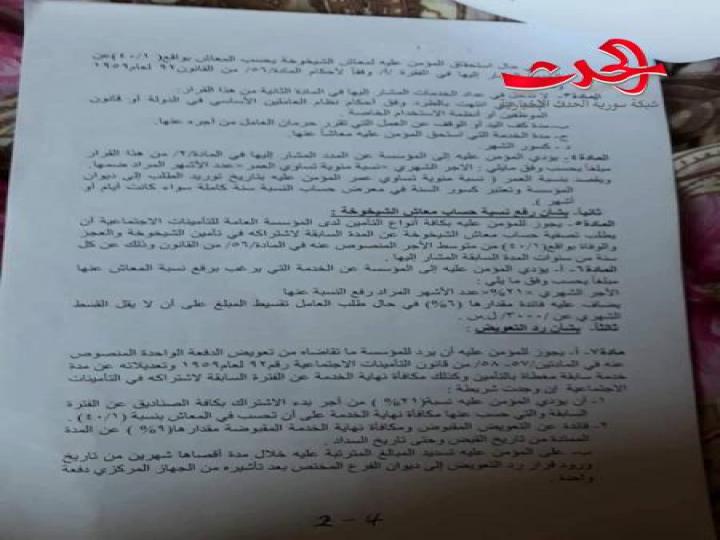 حال استحقاق المؤمن عليه لمعاش الشيخوخة يحسب المعاش بواقع( ٤٠/١ )عن
إليها في الفقرة /أ/ وفقاً لأحكام المادة/٥٦/ من القانون ٩٢ لعام ١٩٥٩
الحدث
شبكة سورية الحدث الإخبارية
المادة٣ـ لا تدخل في عداد الخدمات المشار إليها في المادة الثانية من هذا القرار :
انتهت بالطرد وفق أحكام نظام العاملين الأساسي في الدولة أو قانون
الموظفين أو أنظمة الاستخدام الخاصة
ب- مدة كف اليد أو الوقف عن العمل التي تقرر حرمان العامل من أجره عنها.
ج- مدة الخدمة التي استحق المؤمن عليه معاشاً عنها.
د- كسور الشهر.
المادة٤ـ يؤدي المؤمن عليه إلى المؤسسة عن المدد المشار إليها في المادة/٢/ من هذا القرار
مبلغاً يحسب وفق مايلي : الأجر الشهري × نسبة مئوية تساوي العمر × عدد الأشهر المراد ضمها.
ويقصد بنسبة العمر ( نسبة مئوية تساوي عمر المؤمن عليه بتاريخ توريد الطلب إلى ديوان
المؤسسة وتعتبر كسور السنة في معرض حساب النسبة سنة كاملة سواء كانت أيام أو
أشهر ).
ثانياً- بشأن رفع نسبة حساب معاش الشيخوخة :
المادة٥ـ يجوز للمؤمن عليه بكافة أنواع التأمين لدى المؤسسة العامة للتأمينات الاجتماعية أن
يطلب تصفية حساب معاش الشيخوخة عن المدة السابقة لاشتراكه في تأمين الشيخوخة والعجز
والوفاة بواقع(٤٠/١) من متوسط الأجر المنصوص عنه في المادة/٥٦/ من القانون وذلك عن كل
سنة من سنوات المدة السابقة المشار إليها .
المادة٦ـ أ- يؤدي المؤمن عليه إلى المؤسسة عن الخدمة التي يرغب برفع نسبة المعاش عنها
مبلغاً يحسب وفق ما يلي :
الأجر الشهري ×٢١%×عدد الأشهر المراد رفع النسبة عنها
يضاف عليه فائدة مقدارها (٦%) في حال طلب العامل تقسيط المبلغ على أن لا يقل القسط
الشهري عن /٣٠٠٠/ ل.س .
ثالثاً- بشأن رد التعويض :
مادة٧ـ أ- يجوز للمؤمن عليه أن يرد للمؤسسة ما تقاضاه من تعويض الدفعة الواحدة المنصوص
عنه في المادتين/٥٧ـ ٥٨/ من قانون التأمينات الاجتماعية رقم ٩٢ لعام ١٩٥٩ وتعديلاته عن مدة
خدمة سابقة مغطاة بالتأمين وكذلك مكافأة نهاية الخدمة عن الفترة السابقة لاشتراكه في التأمينات
الاجتماعية إن وجدت شريطة :
١- أن يؤدي المؤمن عليه نسبة(٢١% ) من أجر بدء الاشتراك بكافة الصناديق عن الفترة
السابقة والتي حسب عنها مكافأة نهاية الخدمة على أن تحسب في المعاش بنسبة (٤٠/١) .
٢- فائدة عن التعويض المقبوض ومكافأة نهاية الخدمة المقبوضة مقدارها(٩%) عن المدة
الممتدة من تاريخ القبض وحتى تاريخ السداد.
ب- على المؤمن عليه تسديد المبالغ المترتبة عليه خلال مدة أقصاها شهرين من تاريخ
ورود قرار رد التعويض إلى ديوان الفرع المختص بعد تأشيره من الجهاز المركزي دفعة
واحدة .
2 - 4